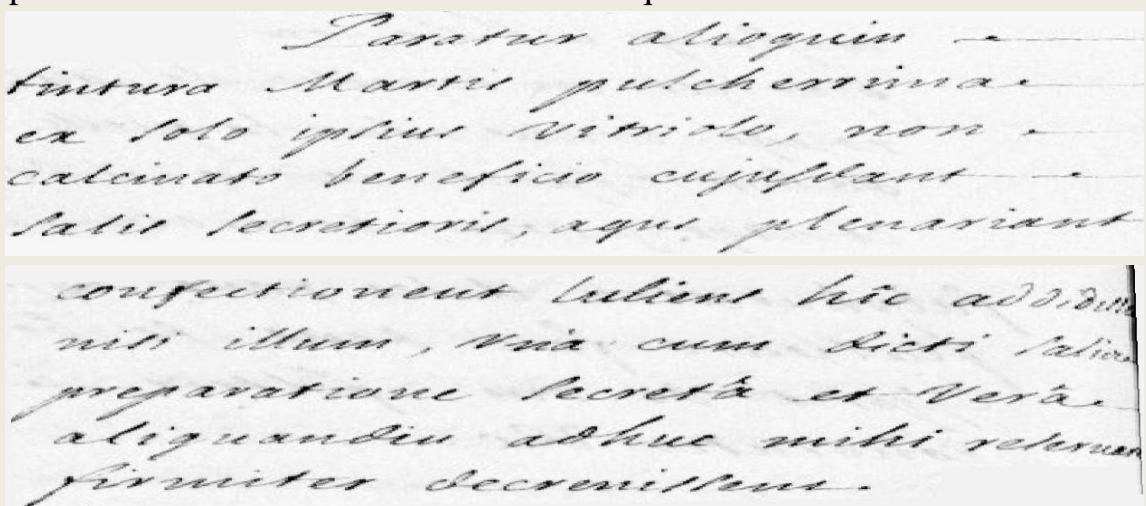 Paratur alioquin
tintura Martis pulcherrima
ex solo ipsius vitriolo, non
calcinato beneficio cujusdam
salis secretioris, cujus plenariam
confectionem lubens hîc
nisi illum, una cum dicti salis
preparatione secretâ et verâ
aliquandiu adhuc mihi
firmiter decrevissem.